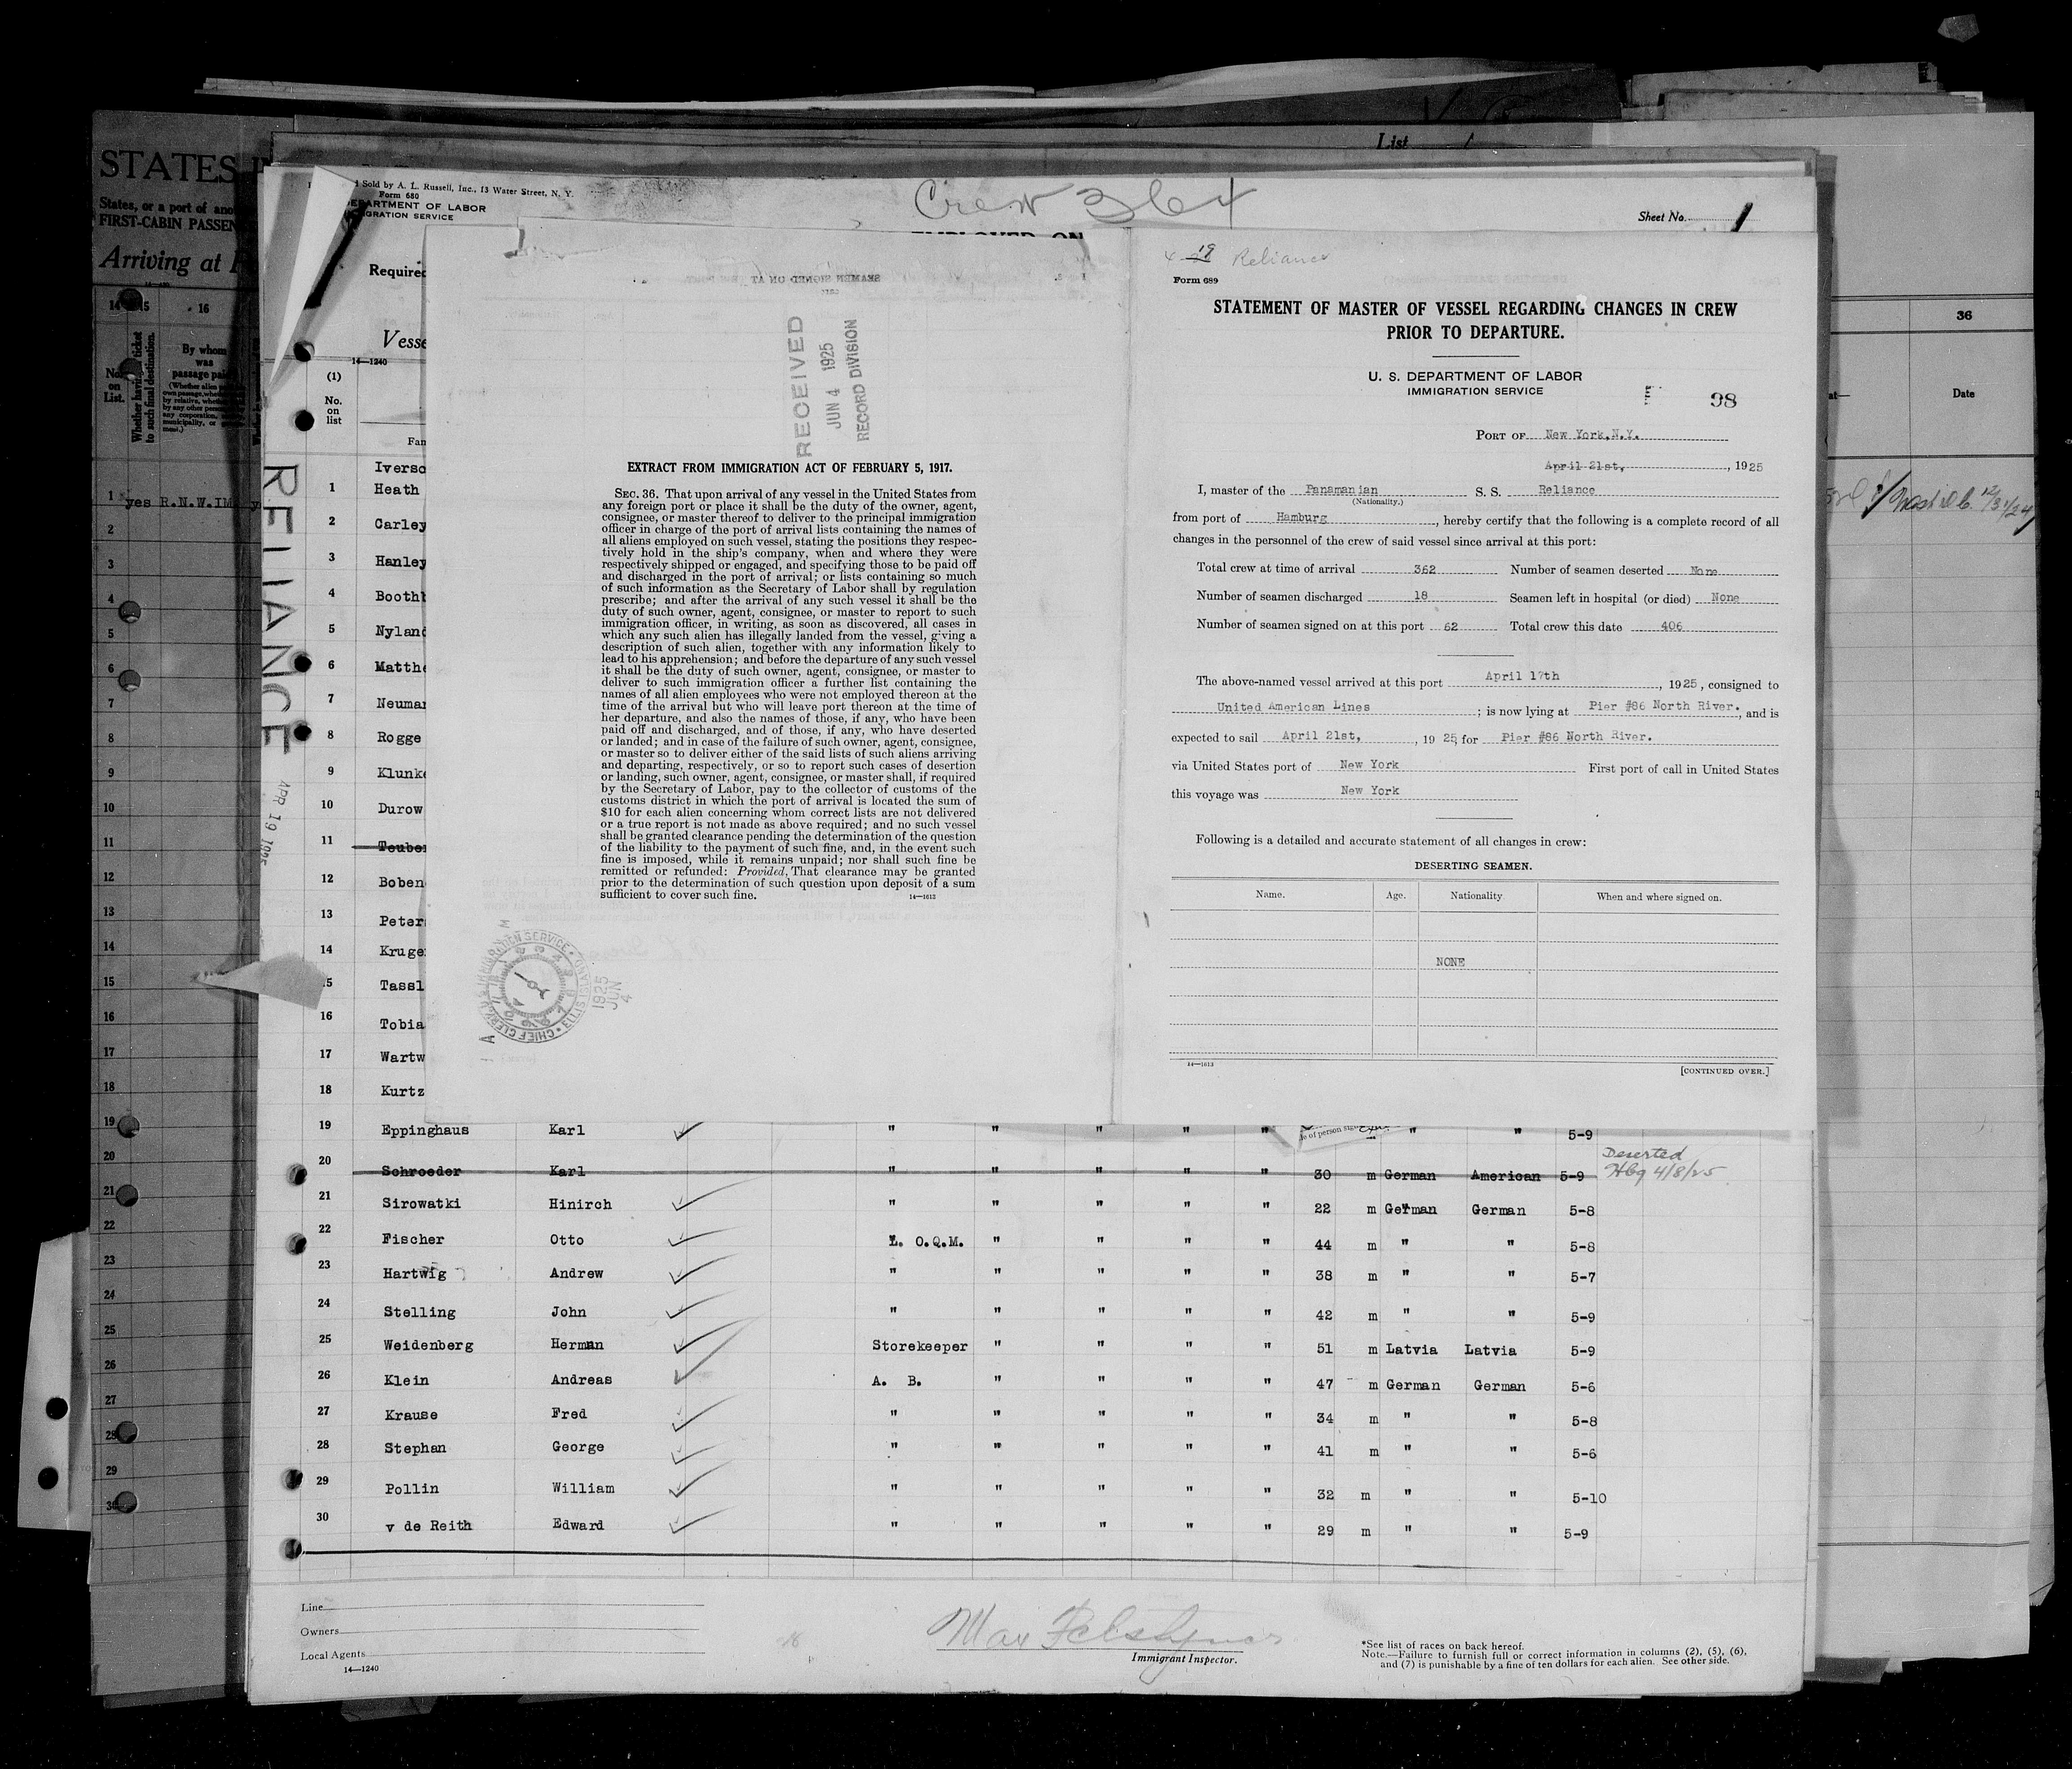 List
STATES
States, or a port of
FIRST-CABIN
Arriving at
14 15 16
No. on List.
Whether having ticket to such final destination.
By whom was passage
1 yes R.N.W.
2
3
4
5
6
7
8
9
10
11
12
13
14
15
16
17
18
19
20
21
22
23
24
25
26
27
28
29
30
Sold by A. L. Russell, Inc., 13 Water Street, N. Y.
Form 680
DEPARTMENT OF LABOR
IMMIGRATION SERVICE
Crew 364
Sheet No. 1
EMPLOYED ON
Required
Vesse
14—1240
(1)
No. on list
RELIANCE
Iverso
1 Heath
2 Carley
3 Hanley
4 Booth
5 Nyland
6 Matthe
7 Neuman
8 Rogge
9 Klunke
10 Durow
11 Teuber
12 Boben
13 Peter
14 Kruge
15 Tassl
16 Tobia
17 Wartw
18 Kurtz
RECEIVED
JUN 4 1925
RECORD DIVISION
EXTRACT FROM IMMIGRATION ACT OF FEBRUARY 5, 1917.
SEC. 36. That upon arrival of any vessel in the United States from
any foreign port or place it shall be the duty of the owner, agent,
consignee, or master thereof to deliver to the principal immigration
officer in charge of the port of arrival lists containing the names of
all aliens employed on such vessel, stating the positions they respec-
tively hold in the ship's company, when and where they were
respectively shipped or engaged, and specifying those to be paid off
and discharged in the port of arrival; or lists containing so much
of such information as the Secretary of Labor shall by regulation
prescribe; and after the arrival of any such vessel it shall be the
duty of such owner, agent, consignee, or master to report to such
immigration officer, in writing, as soon as discovered, all cases in
which any such alien has illegally landed from the vessel, giving a
description of such alien, together with any information likely to
lead to his apprehension; and before the departure of any such vessel
it shall be the duty of such owner, agent, consignee, or master to
deliver to such immigration officer a further list containing the
names of all alien employees who were not employed thereon at the
time of the arrival but who will leave port thereon at the time of
her departure, and also the names of those, if any, who have been
paid off and discharged, and of those, if any, who have deserted
or landed; and in case of the failure of such owner, agent, consignee,
or master so to deliver either of the said lists of such aliens arriving
and departing, respectively, or so to report such cases of desertion
or landing, such owner, agent, consignee, or master shall, if required
by the Secretary of Labor, pay to the collector of customs of the
customs district in which the port of arrival is located the sum of
$10 for each alien concerning whom correct lists are not delivered
or a true report is not made as above required; and no such vessel
shall be granted clearance pending the determination of the question
of the liability to the payment of such fine, and, in the event such
fine is imposed, while it remains unpaid; nor shall such fine be
remitted or refunded: Provided, That clearance may be granted
prior to the determination of such question upon deposit of a sum
sufficient to cover such fine.
14—1613
1925
JUN
4
Reliance
Form 689
STATEMENT OF MASTER OF VESSEL REGARDING CHANGES IN CREW
PRIOR TO DEPARTURE.
U. S. DEPARTMENT OF LABOR
IMMIGRATION SERVICE
98
PORT OF New York,N.Y.
April 21st, , 1925
I, master of the Panamanian S. S. Reliance
(Nationality.)
from port of Hamburg , hereby certify that the following is a complete record of all
changes in the personnel of the crew of said vessel since arrival at this port:
Total crew at time of arrival 362 Number of seamen deserted None
Number of seamen discharged 18 Seamen left in hospital (or died) None
Number of seamen signed on at this port 62 Total crew this date 406
The above-named vessel arrived at this port April 17th , 1925, consigned to
United American Lines ; is now lying at Pier #86 North River. , and is
expected to sail April 21st, , 1925, for Pier #86 North River.
via United States port of New York First port of call in United States
this voyage was New York
Following is a detailed and accurate statement of all changes in crew:
DESERTING SEAMEN.
Name. Age. Nationality When and where signed on.
NONE
14—1613
[CONTINUED OVER.]
19 Eppinghaus Karl " " " " " " " 5-9
20 Schroeder Karl " " " " " 30 m German American 5-9 Deserted Hbg 4/8/25
21 Sirowatki Hinirch " " " " " 22 m German German 5-8
22 Fischer Otto L. O.Q.M. " " " " 44 m " " 5-8
23 Hartwig Andrew " " " " " 38 m " " 5-7
24 Stelling John " " " " " 42 m " " 5-9
25 Weidenberg Herman Storekeeper " " " " 51 m Latvia Latvia 5-9
26 Klein Andreas A. B. " " " " 47 m German German 5-6
27 Krause Fred " " " " " 34 m " " 5-8
28 Stephan George " " " " " 41 m " " 5-6
29 Pollin William " " " " " 32 m " " 5-10
30 v de Reith Edward " " " " " 29 m " " 5-9
Line
Owners
Local Agents
14—1240
Immigrant Inspector.
*See list of races on back hereof.
Note.—Failure to furnish full or correct information in columns (2), (5), (6),
and (7) is punishable by a fine of ten dollars for each alien. See other side.
36
Date